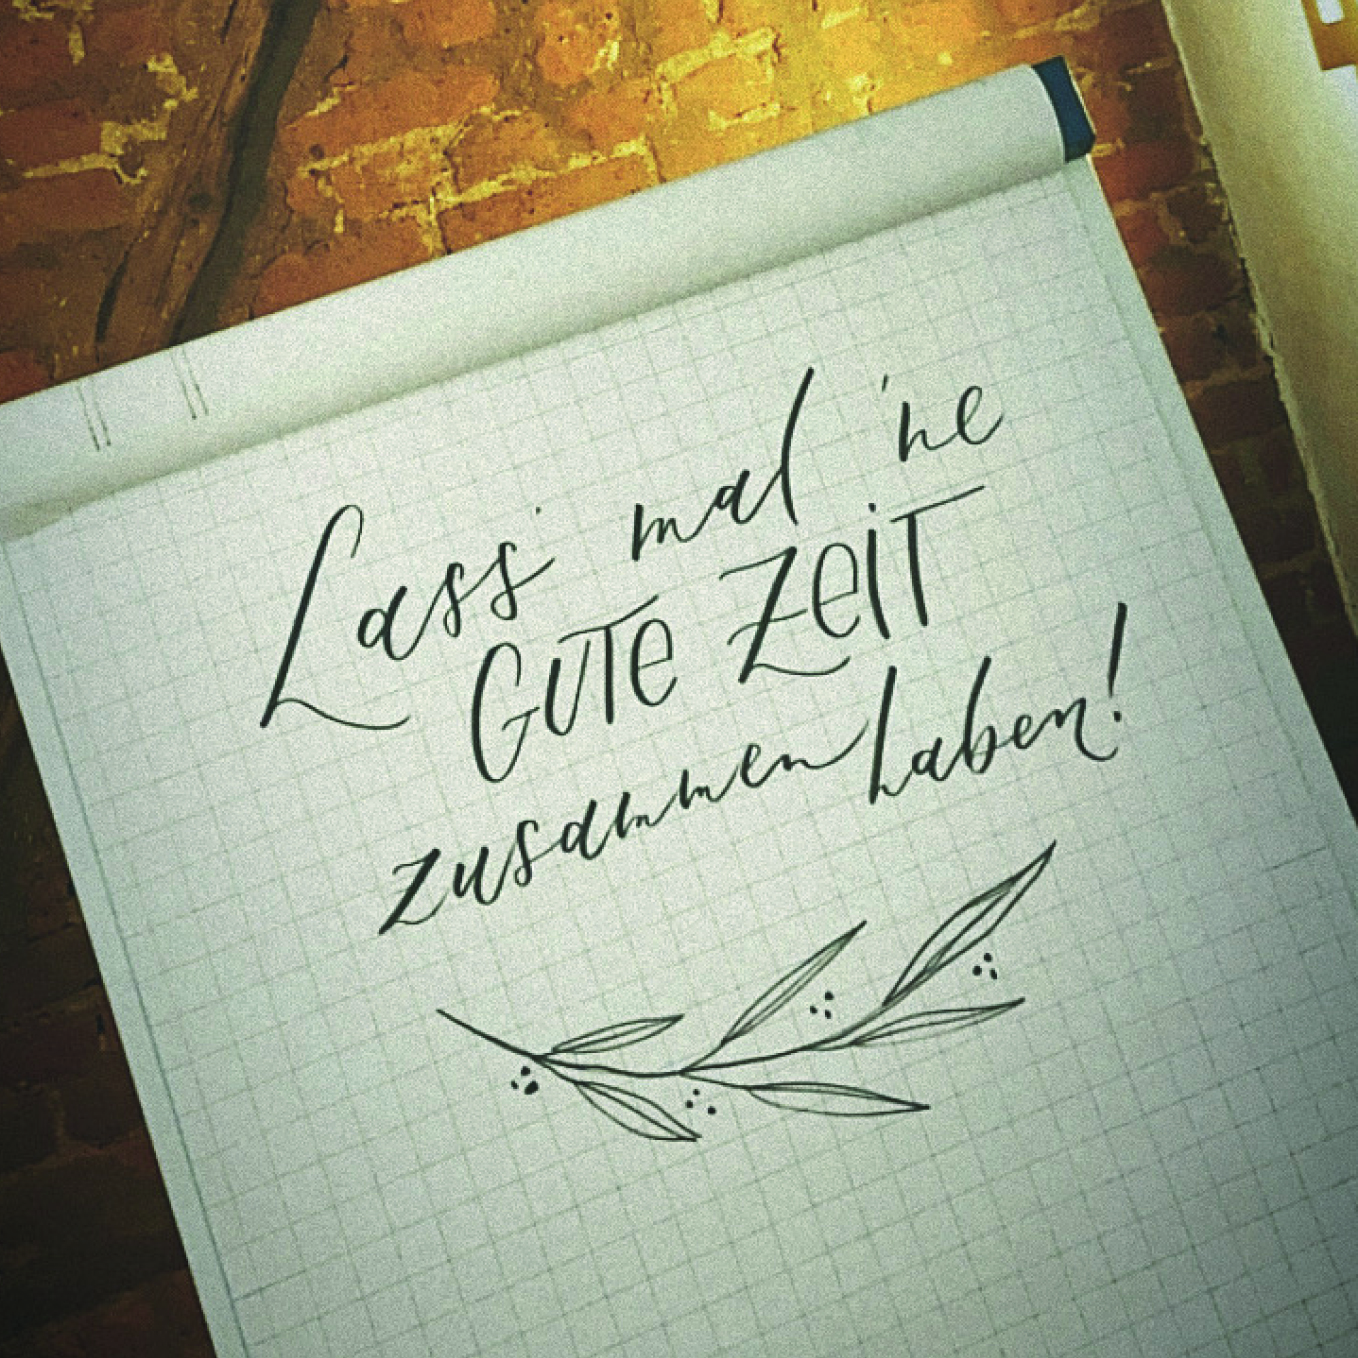 Lass' mal 'ne
GUTE ZEIT
zusammen haben!